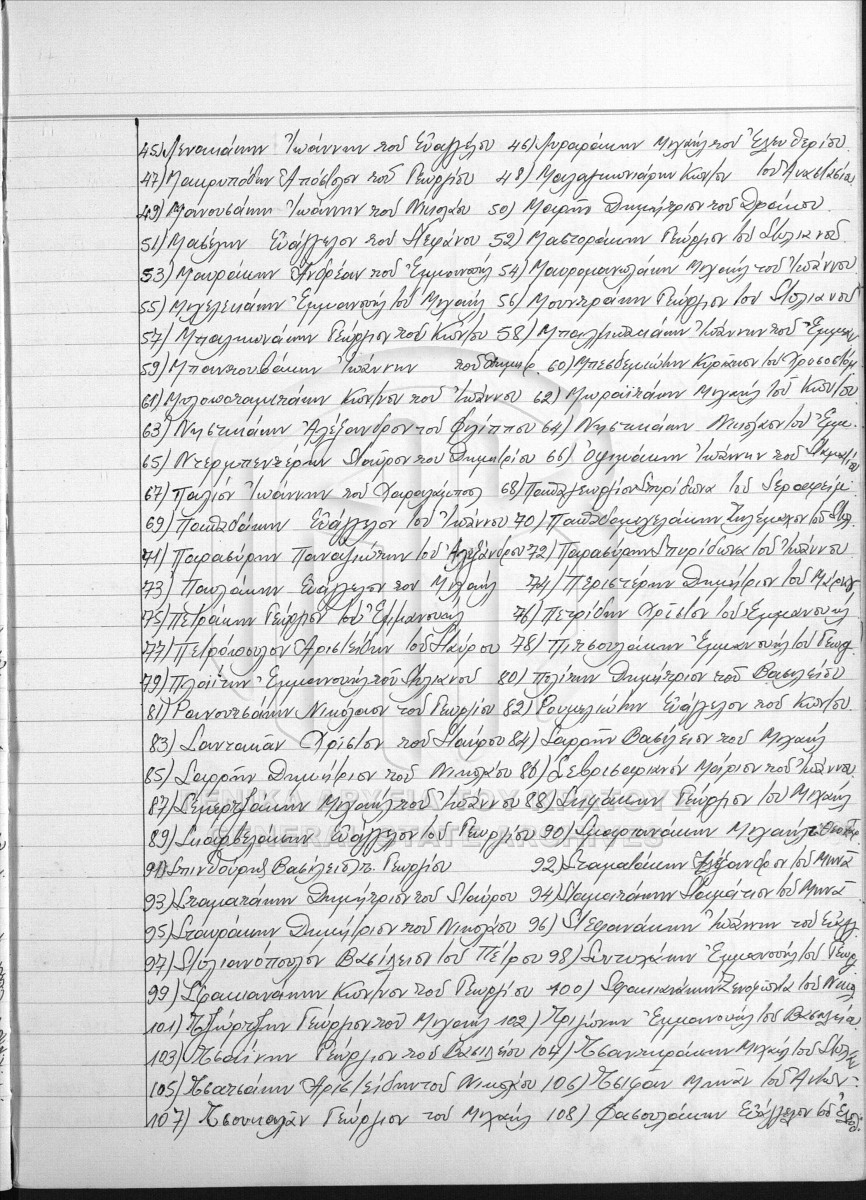 45) Λενακάκην Ἰωάννην τοῦ Εὐαγγέλου 46) Λυραράκην Μιχαήλ τοῦ Ἐλευθερίου.
47) Μακρυπόδην Ἀπόστολον τοῦ Γεωργίου 48) Μαλαγκωνιάρην Κων/νον τοῦ Ἀναστασίου
49) Μανουσάκην Ἰωάννην τοῦ Νικολάου 50) Μαρῆν Δημήτριον τοῦ Δράκου.
51) Μασέλην Εὐάγγελον τοῦ Στεφάνου 52) Μαστοράκην Γεώργιον τοῦ Στυλιανοῦ.
53) Μαυράκην Ἀνδρέαν τοῦ Ἐμμανουήλ 54) Μαυρομανωλάκην Μιχαήλ τοῦ Ἰωάννου
55) Μιχελεκάκην Ἐμμανουήλ τοῦ Μιχαήλ 56) Μουντράκην Γεώργιον τοῦ Στυλιανοῦ
57) Μπαλκωνάκην Γεώργιον τοῦ Κων/νου 58) Ἰωάννην τοῦ Ἐμμαν.
59) Μπαντουβάκην Ἰωάννην τοῦ Δημητρ. 60) Μπεσδεμιώτην Κυριᾶκον τοῦ Χρυσοστόμ
61) Μυλοποταμιτάκην Κων/νον τοῦ Ἰωάννου 62) Μωραϊτάκην Μιχαήλ τοῦ Κων/νου.
63) Νηστικάκην Ἀλέξανδρον τοῦ Φιλίππου 64) Νηστικάκην Νικόλαον τοῦ Ἐμμ.
65) Ντερμπεντέρην Σταῦρον τοῦ Δημητρίου 66) Ἰωάννην τοῦ Σταματίου
67) Παλιόν Ἰωάννην τοῦ Χαραλάμπους 68) Παπαγεωργίου Σπυρίδωνα τοῦ Σεραφείμ.
69) Παπαδάκην Εὐάγγελον τοῦ Ἰωάννου 70) Παπαδομιχελάκην Τηλέμαχον τοῦ Στυλ.
71) Παρασύρην Παναγιώτην τοῦ Ἀλεξάνδρου 72) Παρασύρην Σπυρίδωνα τοῦ Ἰωάννου
73) Παυλάκην Εὐάγγελον του Μιχαήλ 74) Περιστέρην Δημήτριον τοῦ Μάρκου
75) Πετράκην Γεώργιον τοῦ Ἐμμανουήλ 76) Πετρίδην Χρῖστον τοῦ Ἐμμανουήλ
77) Πετρόπουλον Ἀριστείδην τοῦ Σταύρου 78) Πιτσουλάκην Ἐμμανουήλ τοῦ Γεωργ.
79) Πλαΐτην Ἐμμανουήλ τοῦ Στυλιανοῦ 80) Πολίτην Δημήτριον τοῦ Βασιλείου
81) Ρανουτσάκην Νικόλαον τοῦ Γεωργίου 82) Ρουμελιώτην Εὐάγγελον τοῦ Κων/νου.
83) Σαντακᾶν Χρῖστον τοῦ Σταύρου 84) Σαρρῆν Βασίλειον τοῦ Μιχαήλ
85) Σαρρῆν Δημήτριον τοῦ Νικολάου 86) Σεβρισαριανόν Μάριον τοῦ Ἰωάννου.
87) Σεκερτζάκην Μιχαήλ τοῦ Ἰωάννου 88) Σηφάκην Γεώργιον τοῦ Μιχαήλ
ΓΕΝΙΚΑ ΑΡΧΕΙΑ ΤΟΥ ΚΡΑΤΟΥΣ
GENERAL STATE ARCHIVES
89) Σκαρβελάκην Εὐάγγελον τοῦ Γεωργίου 90) Σμαριανάκην Μιχαήλ
91) Σπινθούρης Βασίλειος τ. Γεωργίου 92) Σταματάκην Ἀλέξανδρον τοῦ Μηνᾶ
93) Σταματάκην Δημήτριον τοῦ Σταύρου 94) Σταματάκην Σταμάτιον τοῦ Μηνᾶ
95) Σταυράκην Δημήτριον τοῦ Νικολάου 96) Στεφανάκην Ἰωάννην τοῦ Εὐαγγ.
97) Στυλιανόπουλον Βασίλειον τοῦ Πέτρου 98) Συντυχάκην Ἐμμανουήλ τοῦ Γεωργ
99) Σφακιανάκην Κων/νον τοῦ Γεωργίου 100) Σφακιανάκην Ξενοφῶντα τοῦ Νικολ
101) Τζώρτζην Γεώργιον τοῦ Μιχαήλ 102) Τριζώνην Ἐμμανουήλ τοῦ Βασιλείου
103) Τσαΐνην Γεώργιον τοῦ Βασιλείου 104) Τσαντηράκην Μιχαήλ τοῦ Στυλ.
105) Τσατσάκην Ἀριστείδην τοῦ Νικολάου 106) Τσιφᾶν Μηνᾶν τοῦ Ἀντων.
107) Τσουκαλᾶν Γεώργιον τοῦ Μιχαήλ 108) Φασουλάκην Εὐάγγελον τοῦ